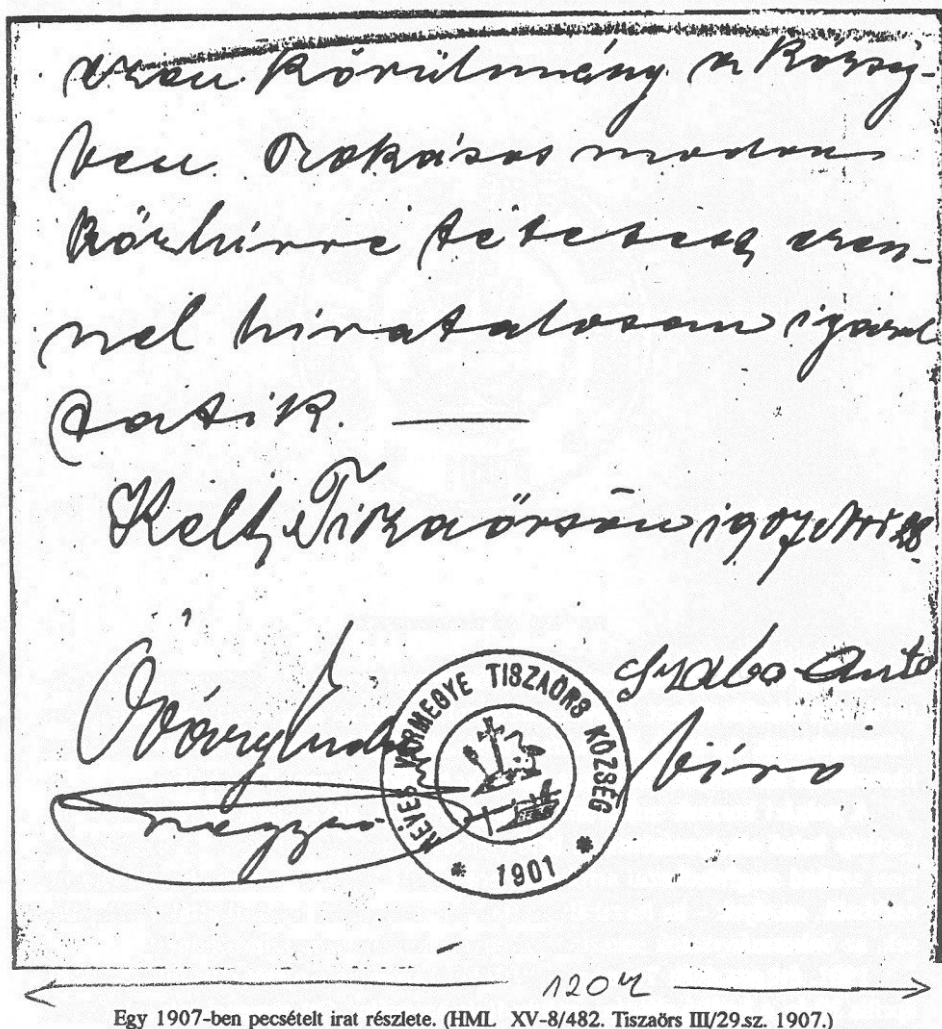 azon körülmény a község-
ben szokásos modon
közhirré tétetett, ezen-
nel hivatalosan igazol
tatik. —
Kelt, Tiszaörsön 1907 28
Szabo Antal
biro
HEVES VÁRMEGYE TISZAÖRS KÖZSÉG
* 1901 *
120%
Egy 1907-ben pecsételt irat részlete. (HML XV-8/482. Tiszaörs III/29.sz. 1907.)